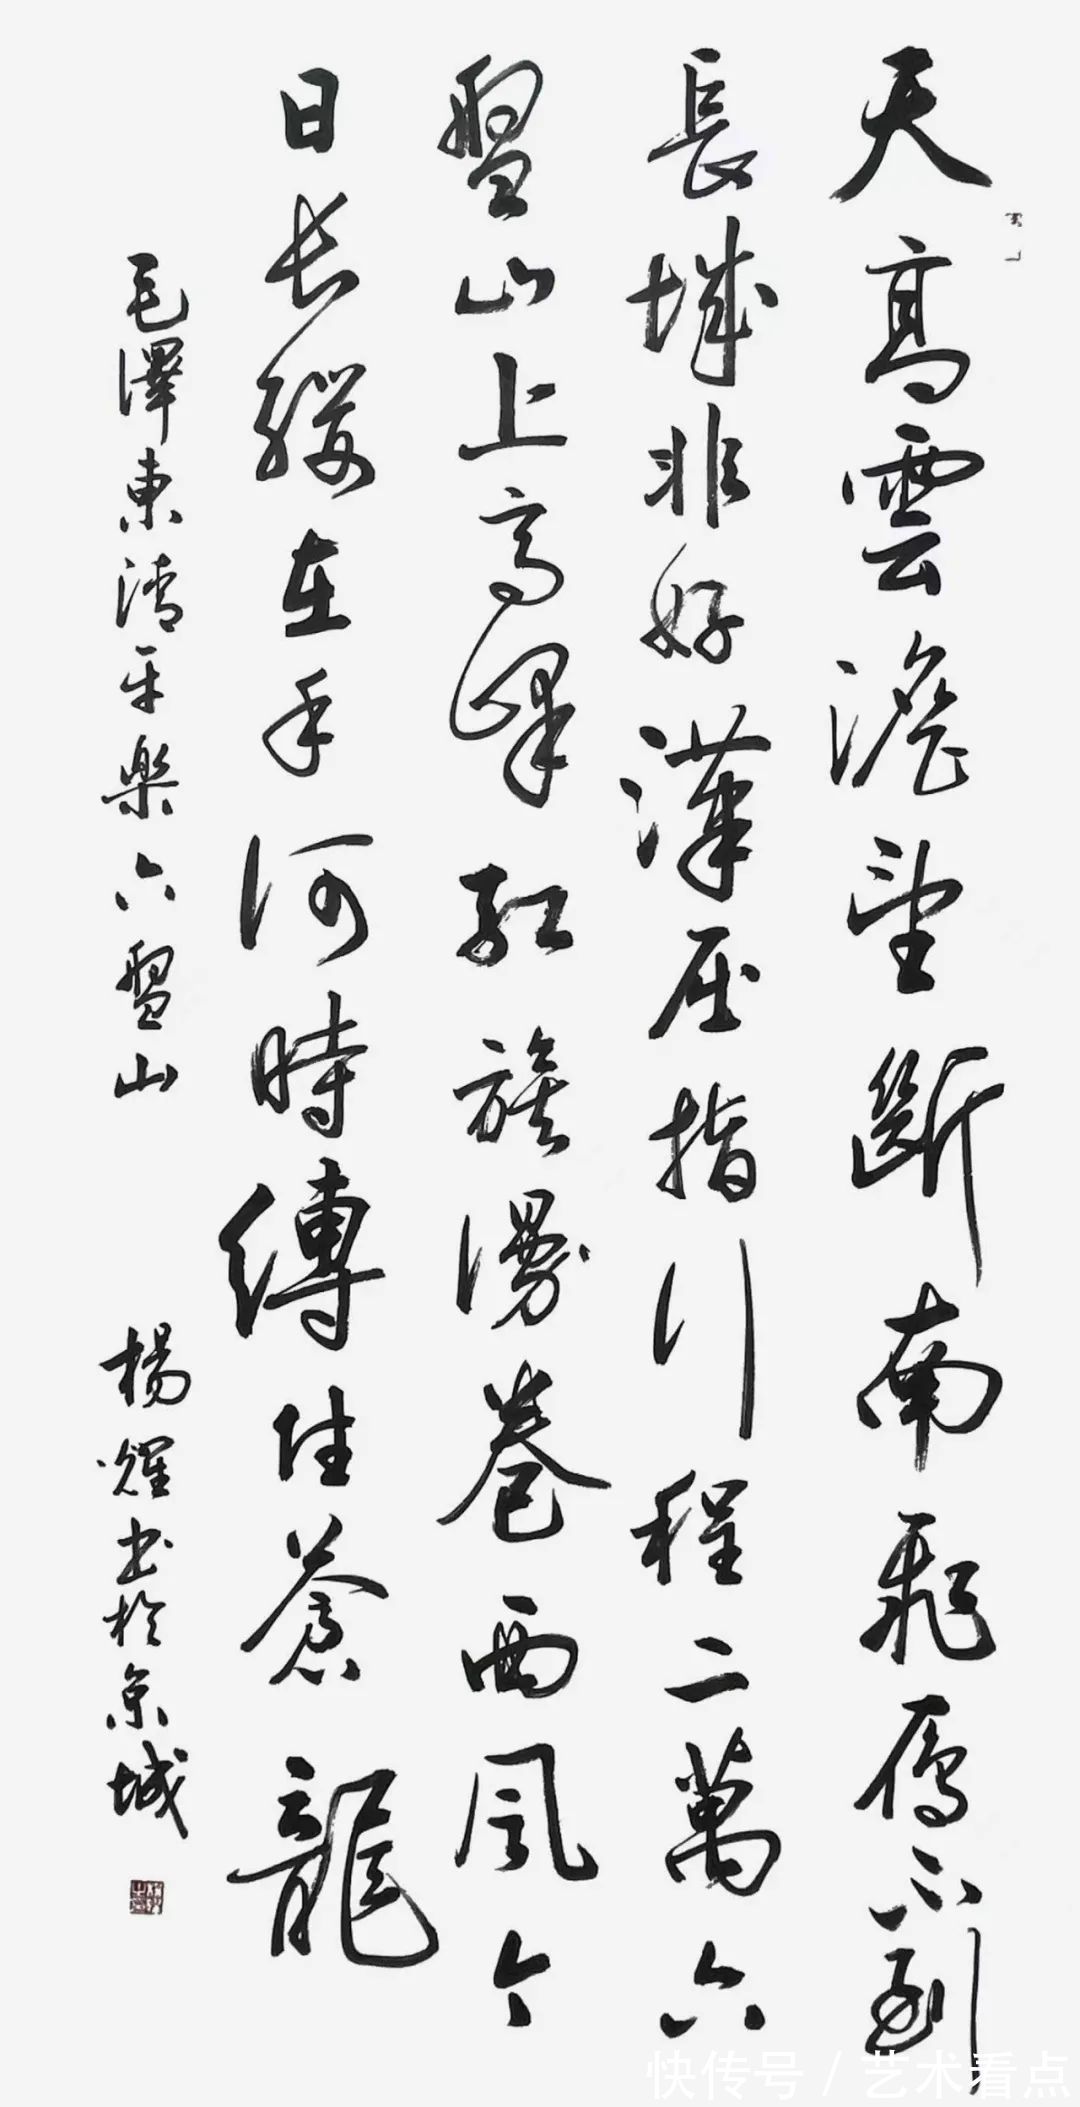 天高雲澹望斷南飛雁不到
長城非好漢屈指行程二萬六
盤山上高峰紅旗漫卷西風今
日长纓在手何時縛住蒼龍
毛澤東清平楽六盤山
楊耀书於京城
快传号 / 艺术看点